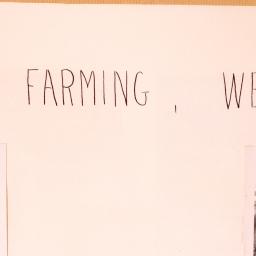 FARMING, WE